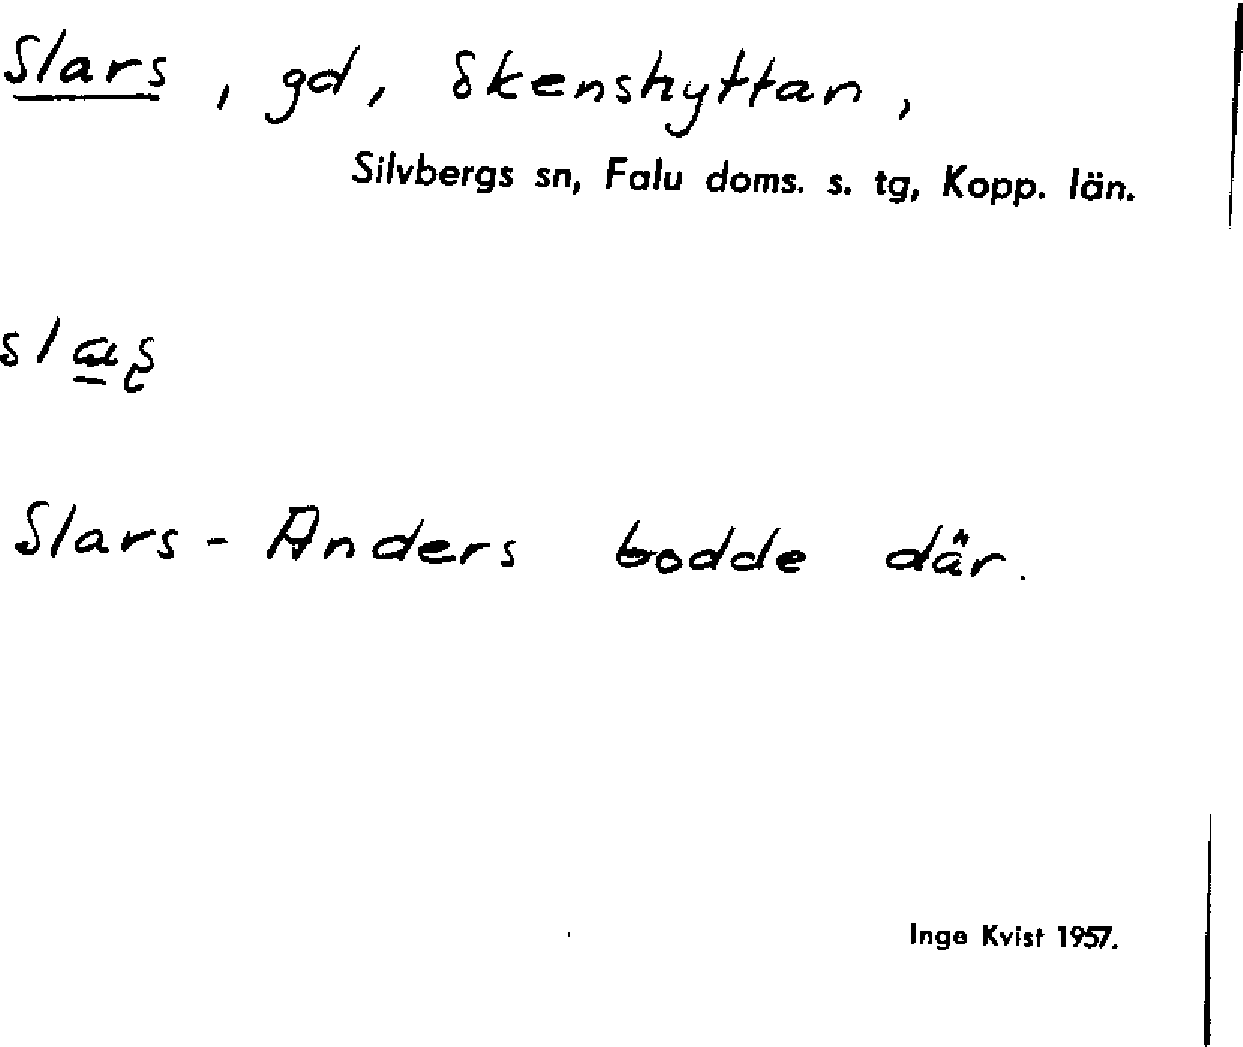 Slars, gd, Skenshyttan,
Silvbergs sn, Falu doms. s. tg, Kopp. län.
Slars - Anders bodde där.
Inge Kvist 1957.